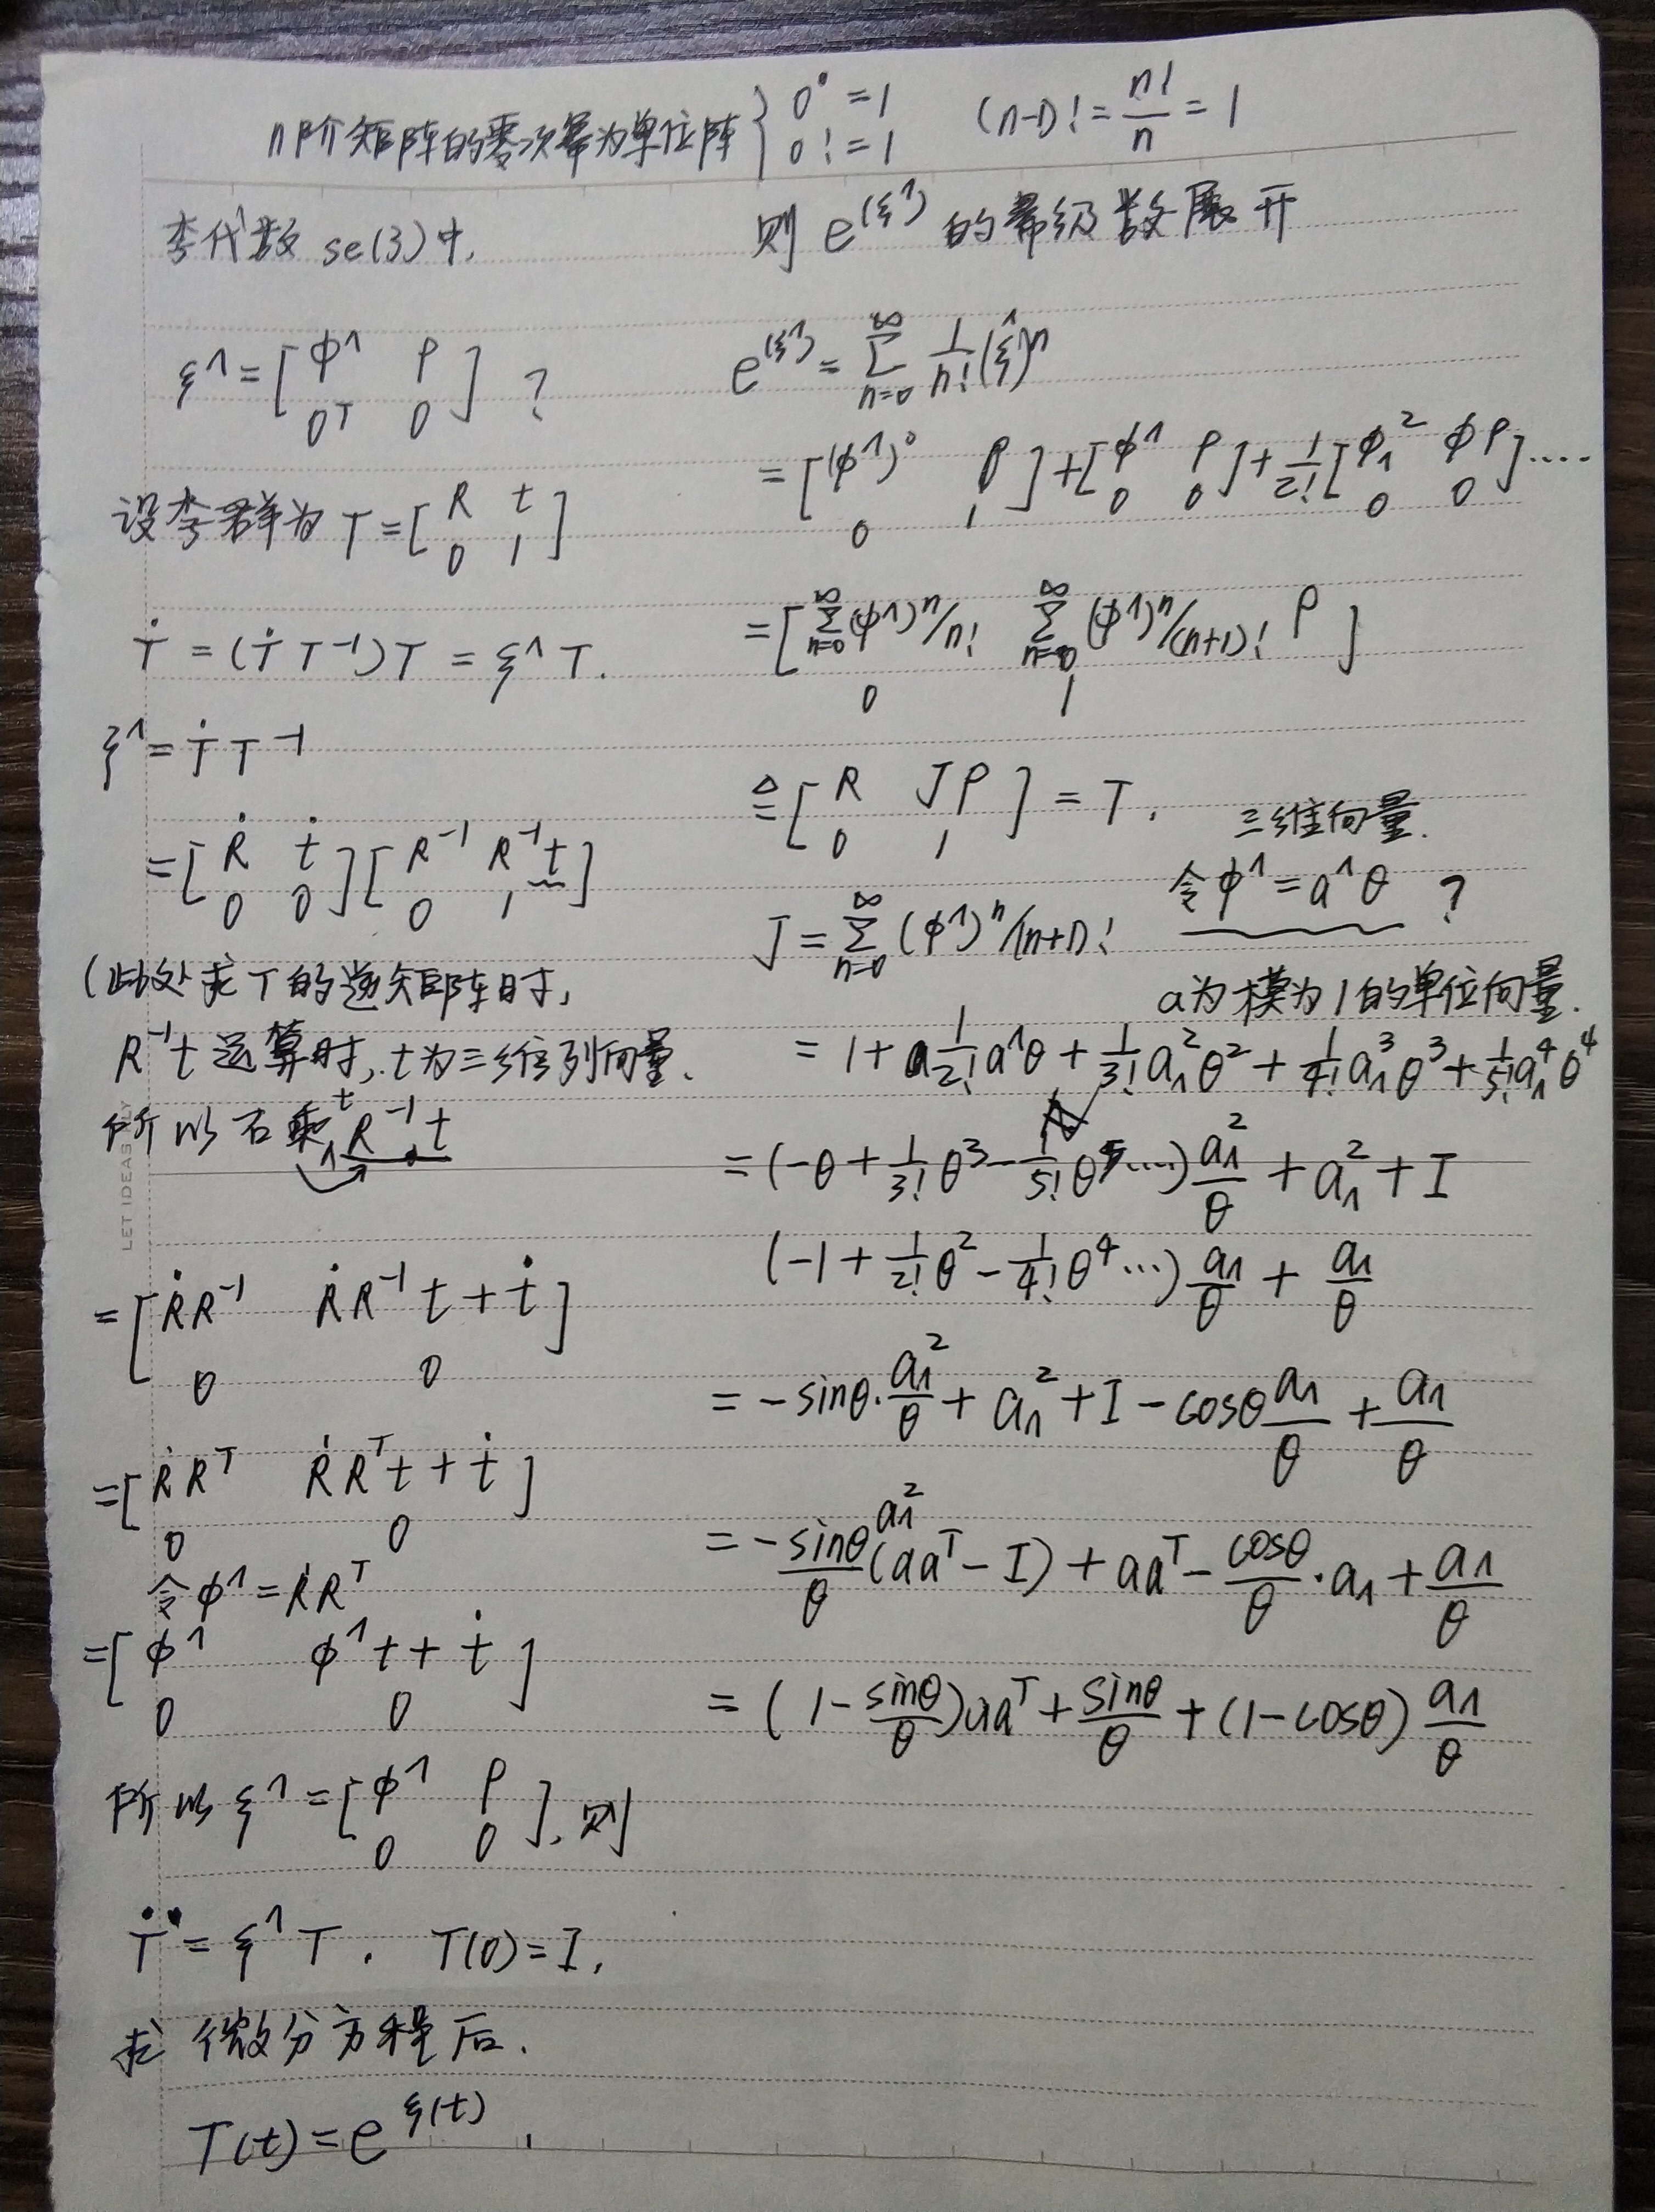 n阶矩阵的零次幂为单位阵 { 0⁰ = 1 0! = 1 (n-1)! = n!/n = 1
李代数 se(3)中,
ξ^ = [ φ^ ρ
0ᵀ 0 ] ?
设李群为 T = [ R t
0 1 ]
Ṫ = (Ṫ T⁻¹)T = ξ^ T.
ξ^ = Ṫ T⁻¹
= [ Ṙ ṫ
0 0 ] [ R⁻¹ R⁻¹t
0 1 ]
(此处求T的逆矩阵时,
R⁻¹t 运算时, t为三维列向量、
所以右乘t R⁻¹t
= [ ṘR⁻¹ ṘR⁻¹t + ṫ
0 0 ]
= [ ṘRᵀ ṘRᵀt + ṫ
0 0 ]
令 φ^ = ṘRᵀ
= [ φ^ φ^t + ṫ
0 0 ]
所以 ξ^ = [ φ^ ρ
0 0 ], 则
Ṫ = ξ^ T . T(0) = I,
求 微分方程后.
T(t) = e^ξ(t) ,
则 e^(ξ^) 的幂级数展开
e^(ξ^) = ∑_{n=0}^∞ 1/n! (ξ^)ⁿ
= [ (φ^)⁰ ρ
0 1 ] + [ φ^ ρ
0 0 ] + 1/2! [ φ^² φρ
0 0 ] ....
= [ ∑_{n=0}^∞ (φ^)ⁿ/n! ∑_{n=0}^∞ (φ^)ⁿ/(n+1)! ρ
0 1 ]
≜ [ R Jρ
0 1 ] = T.
三维向量.
令 φ^ = a^θ ?
J = ∑_{n=0}^∞ (φ^)ⁿ/(n+1)!
a为模为1的单位向量.
= 1 + 1/2! a^θ + 1/3! a^²θ² + 1/4! a^³θ³ + 1/5! a^⁴θ⁴
= (-θ + 1/3! θ³ - 1/5! θ⁵ ....) a^²/θ + a^² + I
(-1 + 1/2! θ² - 1/4! θ⁴ ...) a^/θ + a^/θ
= -sinθ · a^²/θ + a^² + I - cosθ a^/θ + a^/θ
a^²
= -sinθ/θ (aaᵀ - I) + aaᵀ - cosθ/θ · a^ + a^/θ
= (1 - sinθ/θ) aaᵀ + sinθ/θ + (1 - cosθ) a^/θ
LET IDEAS FLY